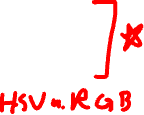 HSV n. RGB